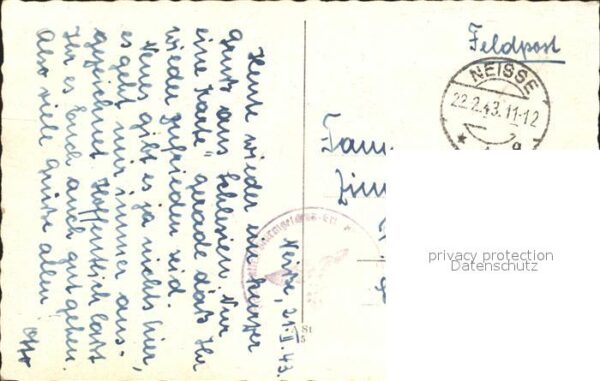 Feldpost
NEISSE
22.2.43.11-12
Fam
Zim
Neisse, 21.II.43.
Heute wieder ein kurzer
Gruß aus Schlesien. Nur
eine Karte, gerade daß Ihr
wieder zufrieden seid.
Neues gibt es ja nichts hier,
es geht mir immer aus-
gezeichnet. Hoffentlich laßt
Ihr es Euch auch gut gehen.
Also viele Grüße allen Otto
privacy protection
Datenschutz